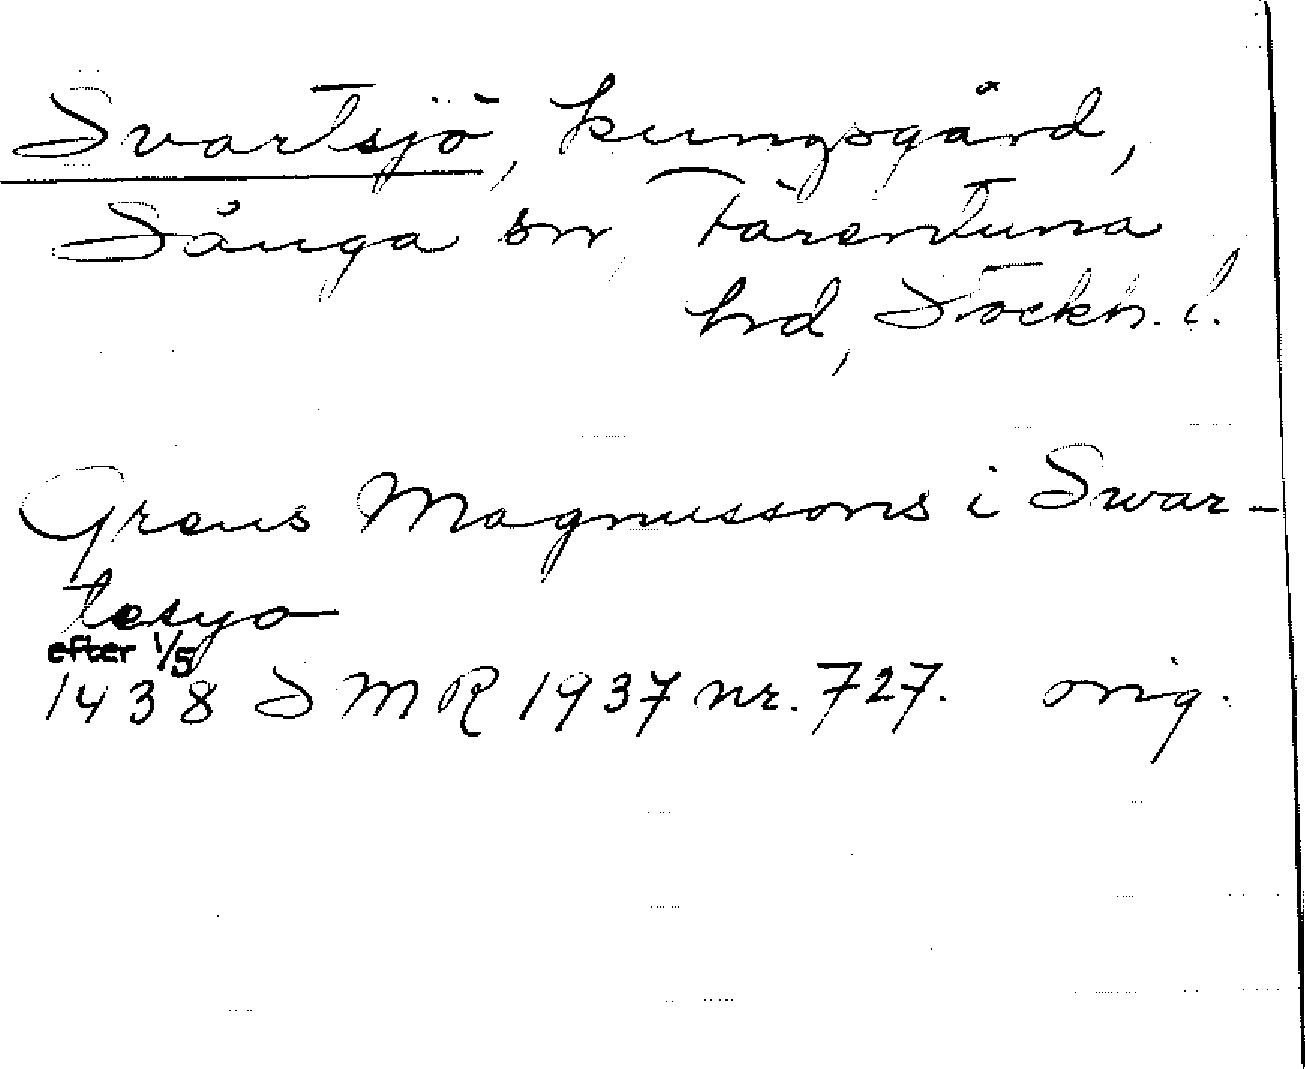 Svartsjö, kungsgård,
Sånga sn, Färentuna
hd, Stockh. l.
Greus Magnussons i Swar-
tesyo
efter 1/5
1438 SMR 1937 nr. 727. orig.